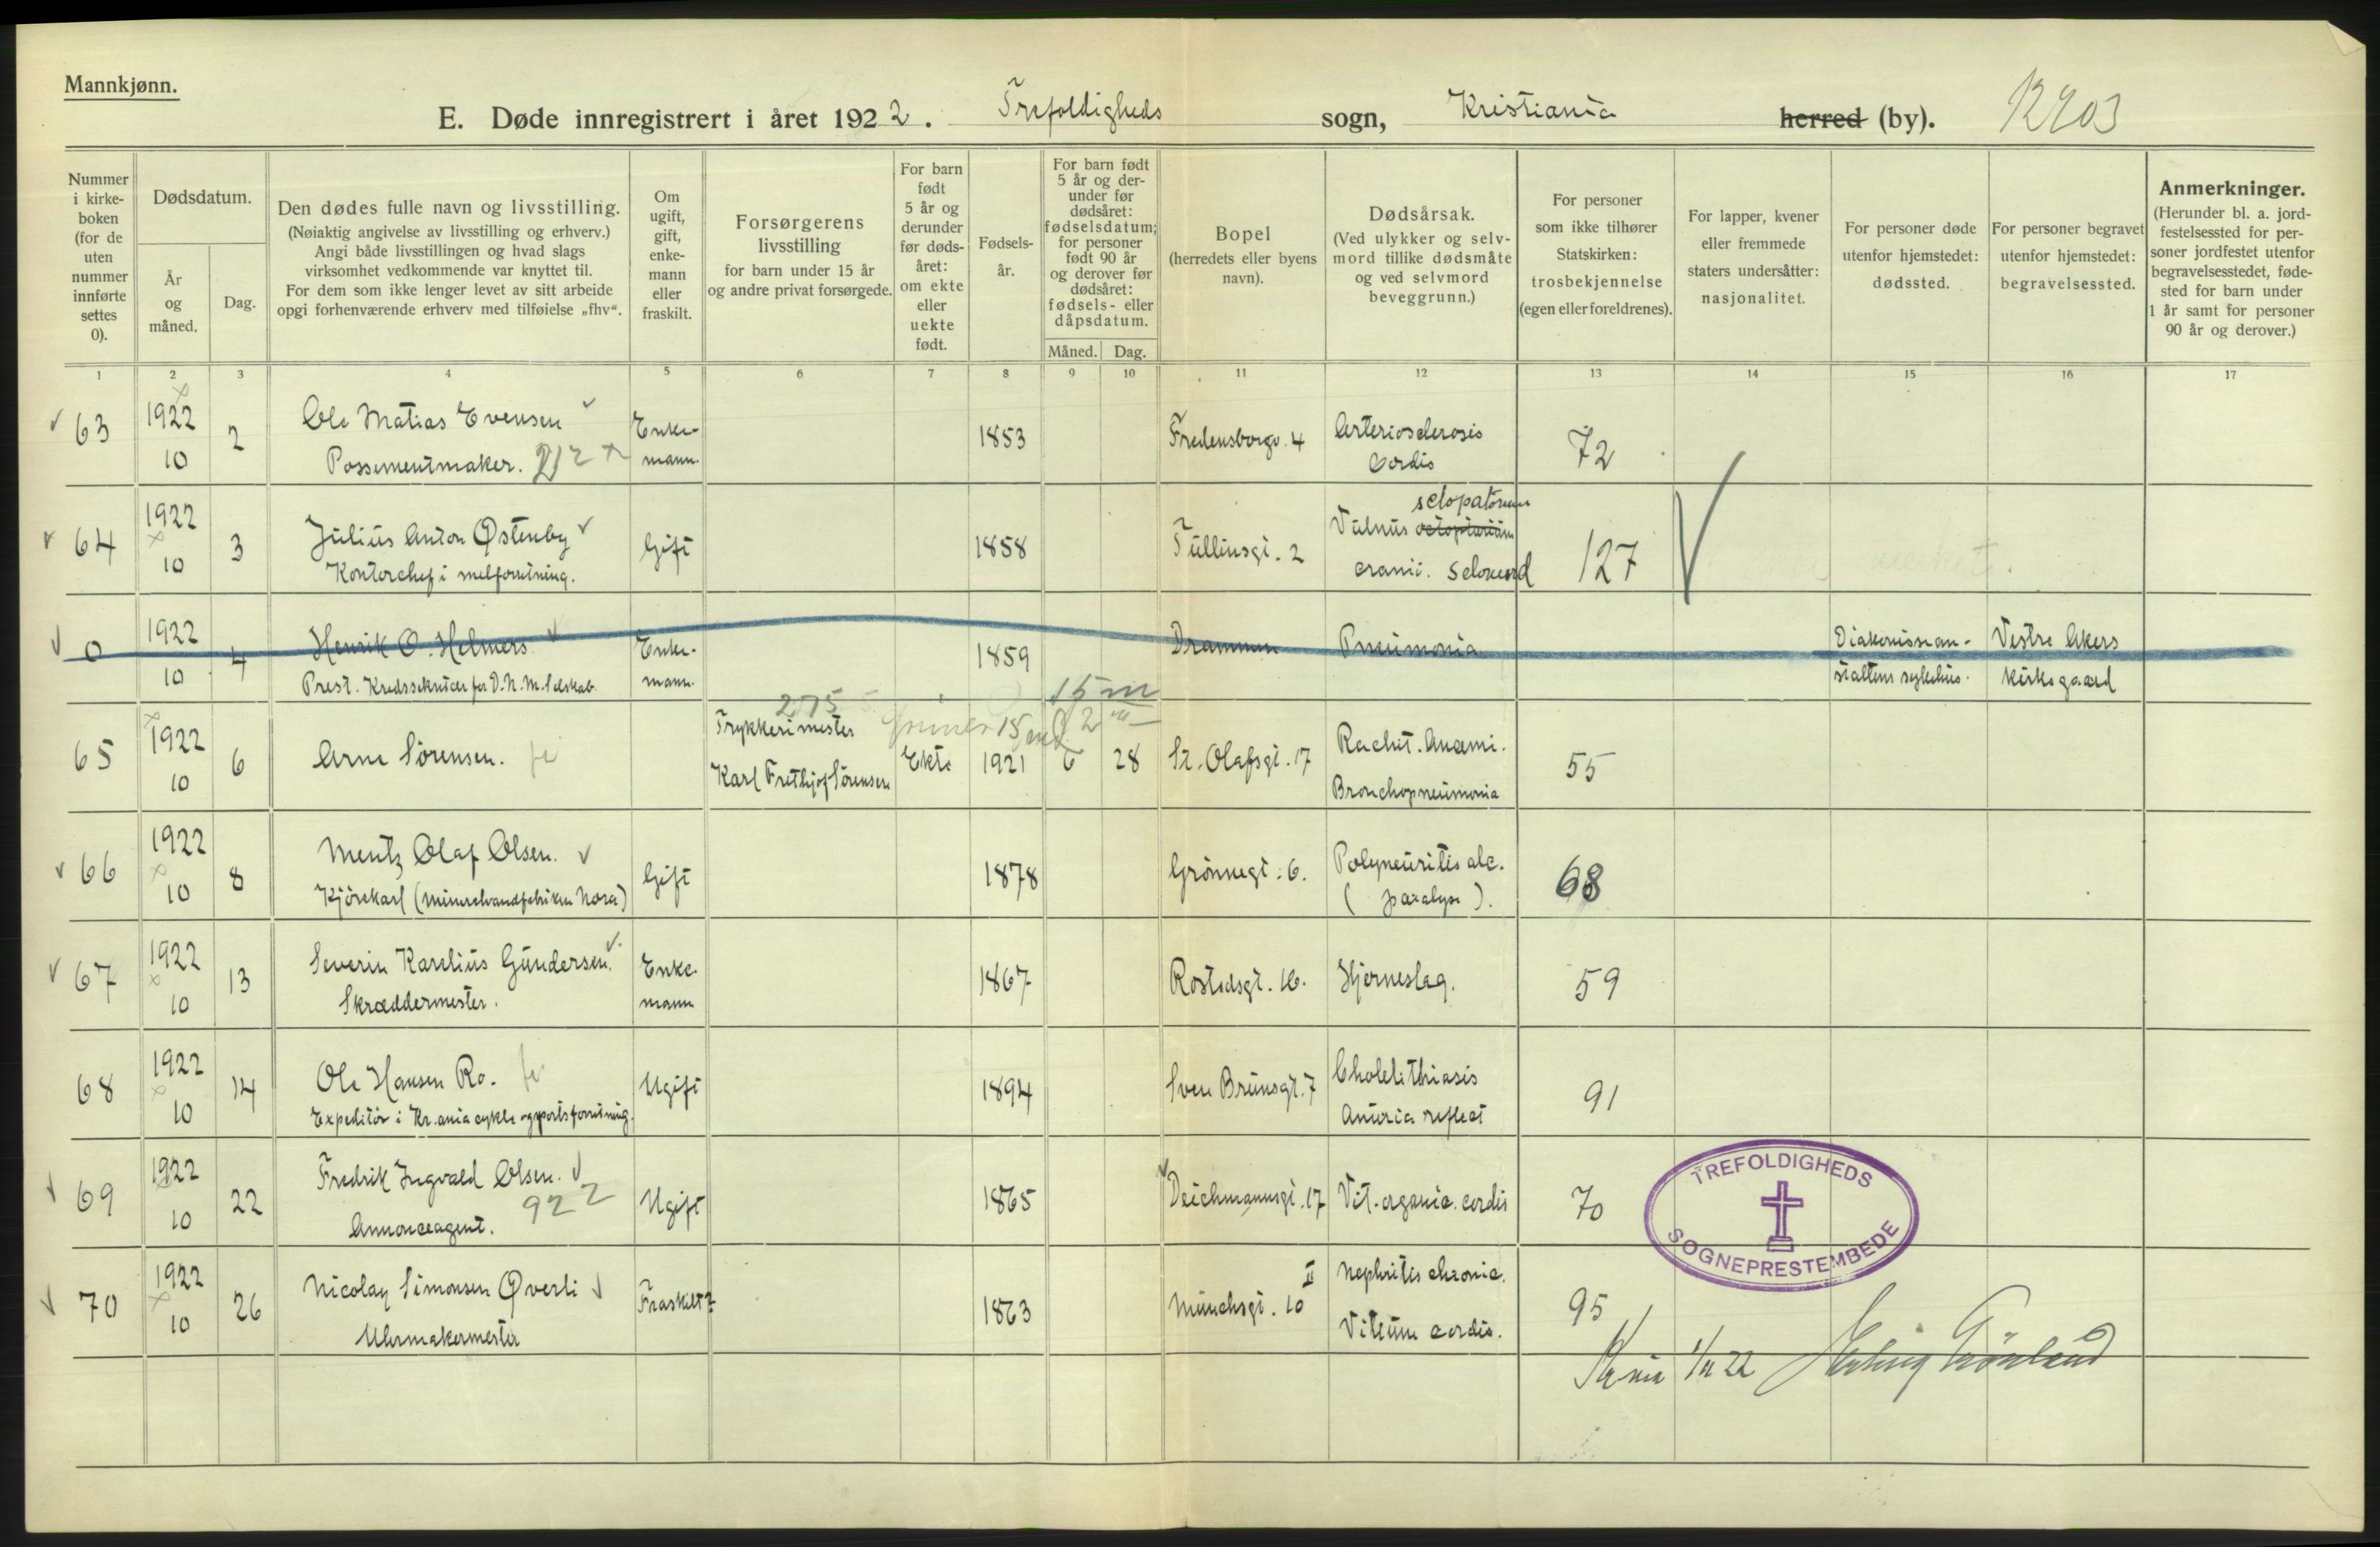 Mannkjønn.
E. Døde innregistrert i året 1922. Trefoldigheds sogn, Kristiania herred (by).
Nummer i kirke-boken (for de uten nummer innførte settes 0).
Dødsdatum.
År og måned.
Dag.
Den dødes fulle navn og livsstilling.
(Nøiaktig angivelse av livsstilling og erhverv.)
Angi både livsstillingen og hvad slags
virksomhet vedkommende var knyttet til.
For dem som ikke lenger levet av sitt arbeide
opgi forhenværende erhverv med tilføielse „fhv“.
Om ugift, gift, enke-mann eller fraskilt.
Forsørgerens
livsstilling
for barn under 15 år
og andre privat forsørgede.
For barn født 5 år og derunder før døds-året: om ekte eller uekte født.
Fødsels-år.
For barn født 5 år og der-under før dødsåret: fødselsdatum; for personer født 90 år og derover før dødsåret: fødsels- eller dåpsdatum.
Måned. Dag.
Bopel
(herredets eller byens navn).
Dødsårsak.
(Ved ulykker og selv-mord tillike dødsmåte og ved selvmord beveggrunn.)
For personer som ikke tilhører Statskirken: trosbekjennelse (egen eller foreldrenes).
For lapper, kvener eller fremmede staters undersåtter: nasjonalitet.
For personer døde utenfor hjemstedet: dødssted.
For personer begravet utenfor hjemstedet: begravelsessted.
Anmerkninger.
(Herunder bl. a. jord-festelsessted for per-soner jordfestet utenfor begravelsesstedet, føde-sted for barn under 1 år samt for personer 90 år og derover.)
1 2 3 4 5 6 7 8 9 10 11 12 13 14 15 16 17
63 1922 10 2 Ole Matias Evensen Enke- 1853 Fredensborgv. 4 Arteriosclerosis 72
Possementmaker. mann. Cordis
64 1922 10 3 Julius Anton Østenby Gift 1858 Tullinsgt. 2 Vulnus sclopatorum 127
Kontorchef i melforretning. cranii. Selvmord
0 1922 10 4 Henrik O. Helmers Enke- 1859 Drammen Pneumonia Diakonissean- Vestre Akers
Prest. Kredssekretær for D. N. M. Selskab mann. staltens sykehus. kirkegaard
65 1922 10 6 Arne Sørensen. Trykkerimester Ekte 1921 6 28 St. Olafsgt. 17 Rachit. Anæmi. 55
Karl Frethjof Sørensen Bronchopneumonia
66 1922 10 8 Mentz Olaf Olsen. Gift 1878 Grønnegt. 6. Polyneuritis alc. 68
Kjørekarl (mineralvandfabriken Nora) (paralyse).
67 1922 10 13 Severin Karelius Gundersen. Enke- 1867 Rostedsgt. 16. Hjerneslag. 59
Skræddermester. mann
68 1922 10 14 Ole Hansen Ro. Ugift 1894 Sven Brunsgt. 7 Cholelithiasis 91
Expeditør i Kr.ania cykle og sportsforretning. Anuria reflect
69 1922 10 22 Fredrik Ingvald Olsen. Ugift 1865 Deichmannsgt. 17 Vit. organic. cordis 70
Annonceagent. 922
70 1922 10 26 Nicolay Simonsen Øverli Fraskilt? 1863 Munchsgt. 10 II Nephritis chronic. 95
Uhrmakermester Vitium cordis.
TREFOLDIGHEDS
SOGNEPRESTEMBEDE